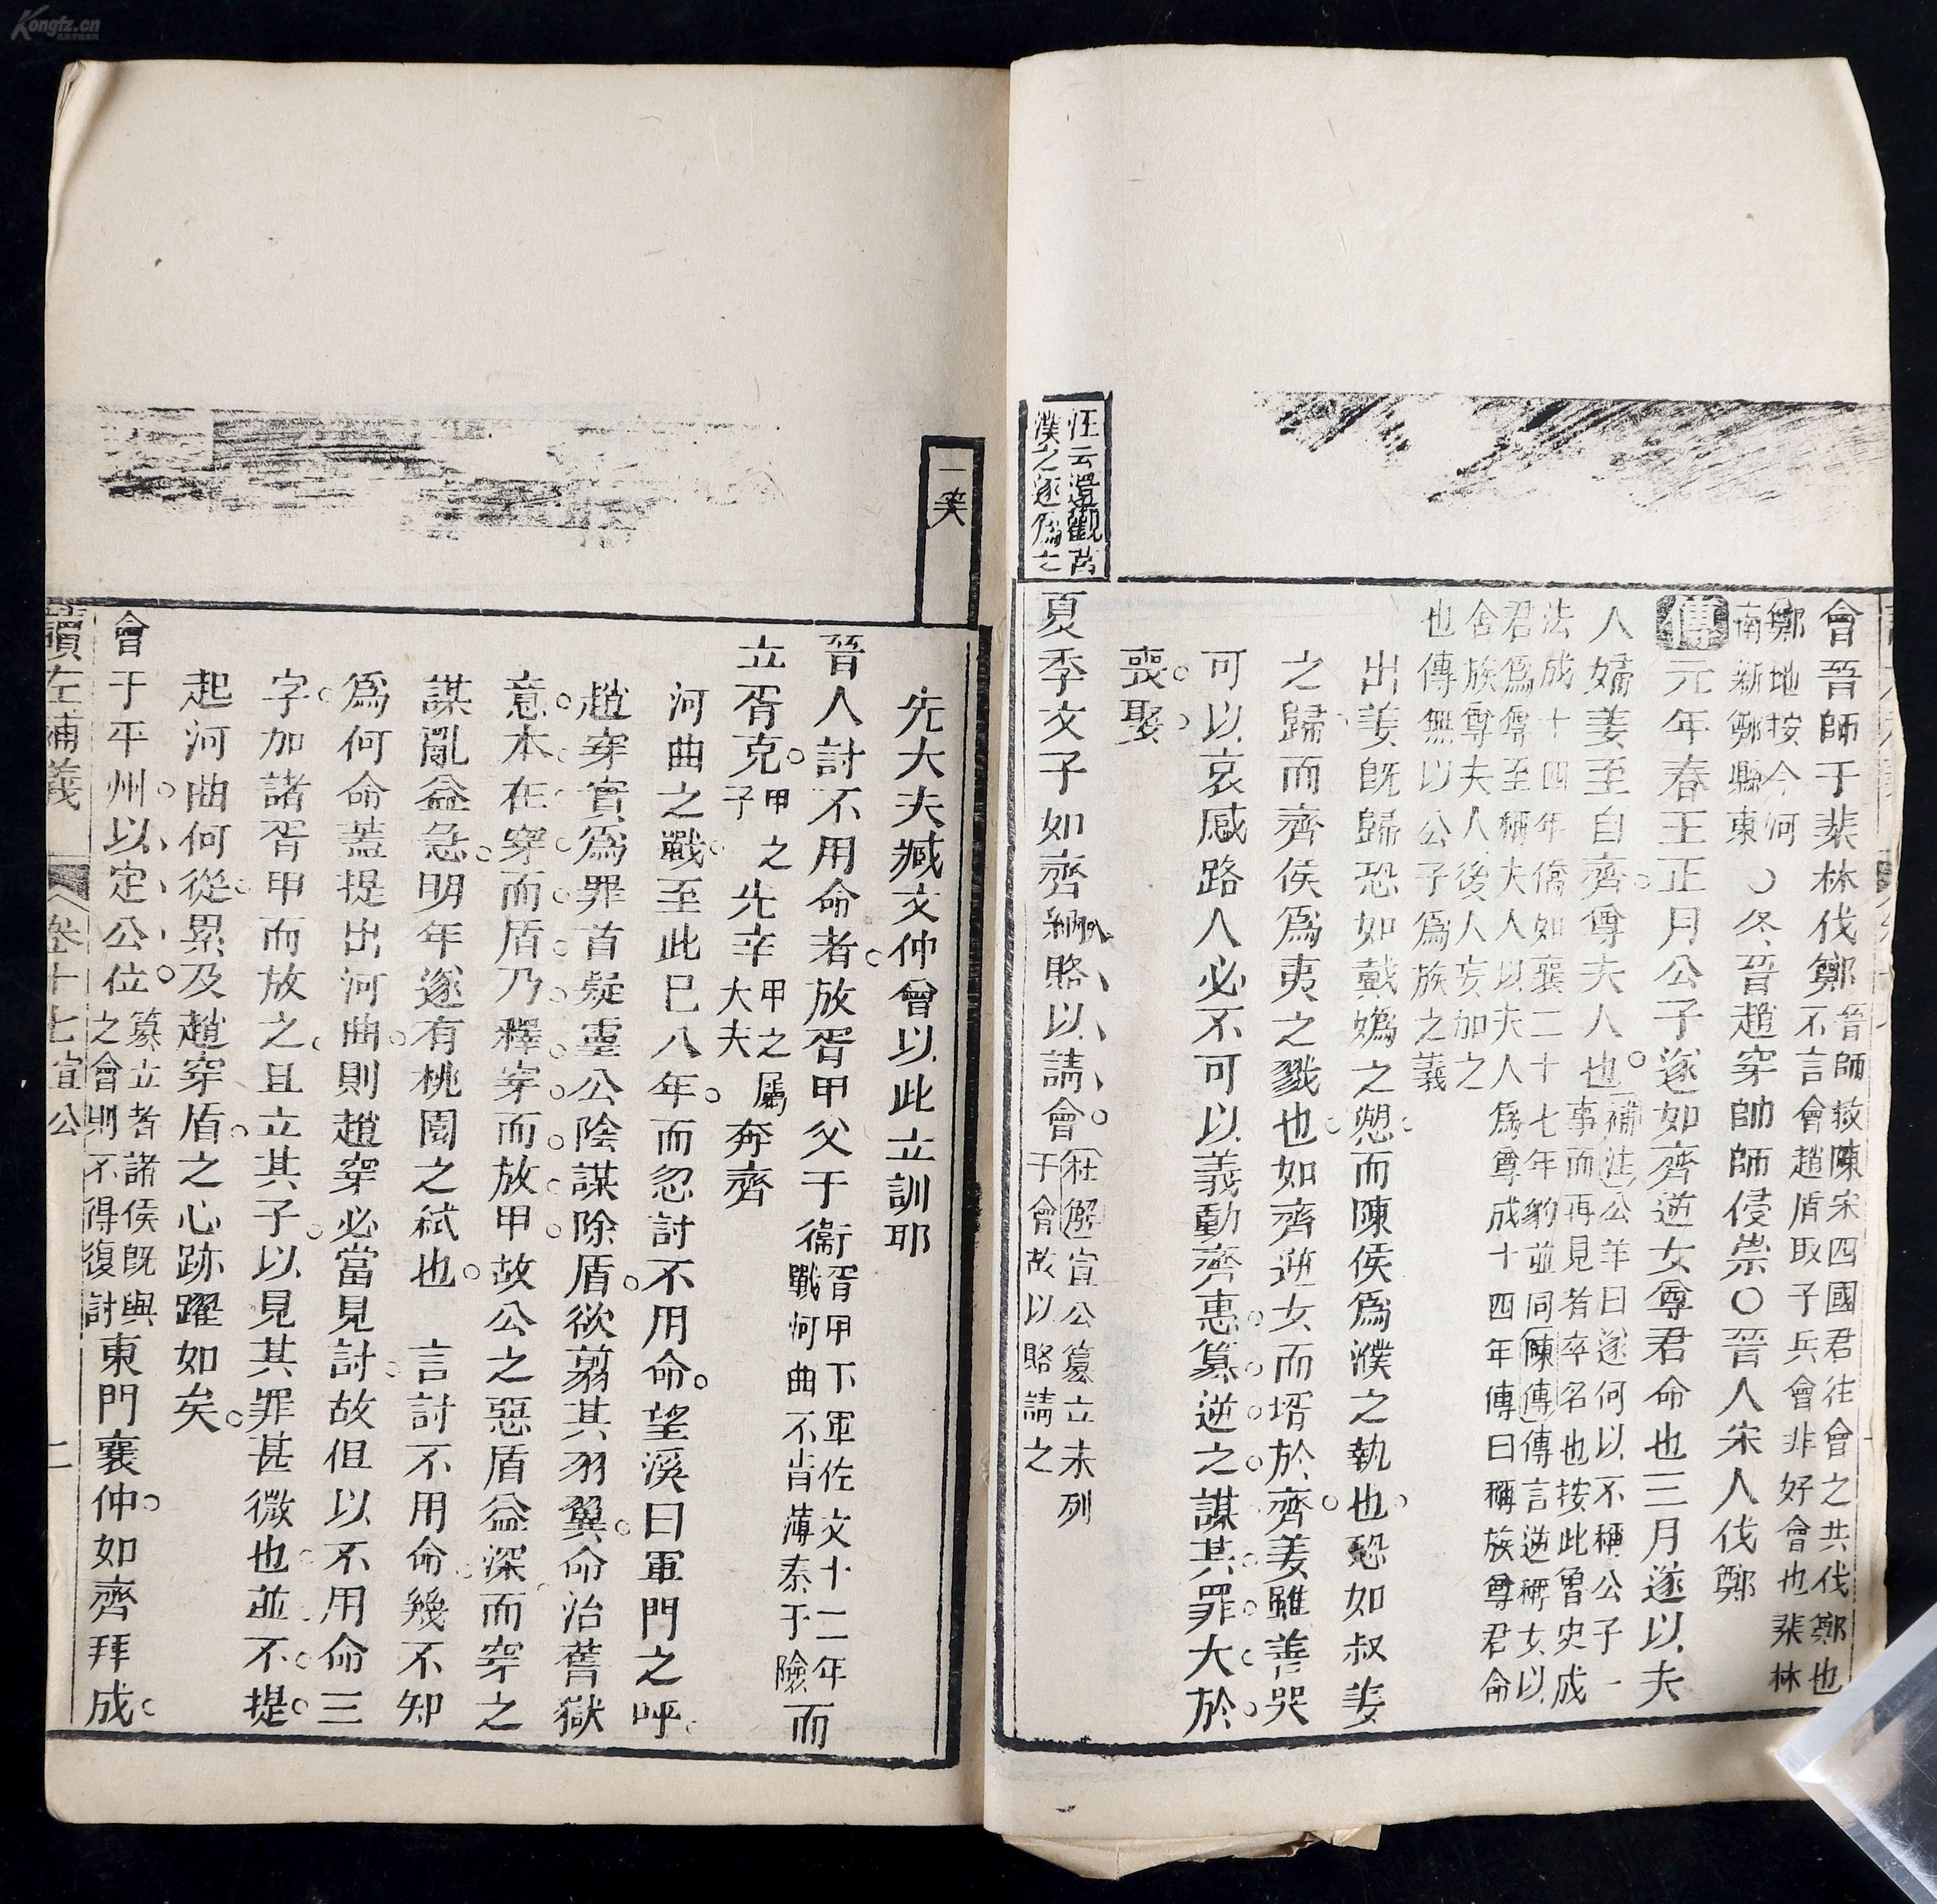 會晉師于棐林伐鄭晉師救陳宋四國君往會之共伐鄭也
不言會趙盾取于兵會非好會也棐林
鄭地按今河
南新鄭縣東○冬晉趙穿帥師侵崇○晉人宋人伐鄭
傳元年春王正月公子遂如齊逆女尊君命也三月遂以夫
人婦姜至自齊尊夫人也補注公羊曰遂何以不稱公子一
事而再見者卒名也按此魯史成
法成十四年僑如襄二十七年豹並同陳傳傳言逆稱女以
君爲尊至稱夫人以夫人爲尊成十四年傳曰稱族尊君命
舍族尊夫人後人妄加之
也傳無以公子爲族之義
出姜旣歸恐如戴嬀之愬而陳侯爲濮之執也恐如叔姜
之歸而齊侯爲夷之戮也如齊逆女而壻於齊姜雖善哭
可以哀感路人必不可以義動齊惠篡逆之謀其罪大於
喪娶
汪云還觀莒
濮之逐爲之
夏季文子如齊納賂以請會杜解宣公篡立未列
于會故以賂請之
一笑
先大夫臧文仲曾以此立訓耶
晉人討不用命者放胥甲父于衞胥甲下軍佐文十二年
戰河曲不肯薄秦于險而
立胥克甲之
子先辛甲之屬
大夫奔齊
河曲之戰至此已八年而忽討不用命望溪曰軍門之呼
趙穿實爲罪首疑靈公陰謀除盾欲翦其羽翼命治舊獄
意本在穿而盾乃釋穿而放甲故公之惡盾益深而穿之
謀亂益急明年遂有桃園之弒也　言討不用命幾不知
爲何命蓋提出河曲則趙穿必當見討故但以不用命三
字加諸胥甲而放之且立其子以見其罪甚微也並不提
起河曲何從累及趙穿盾之心跡躍如矣
會于平州以定公位篡立者諸侯旣與
之會則不得復討東門襄仲如齊拜成
讀左補義　卷十七宣公　二
Kongfz.cn